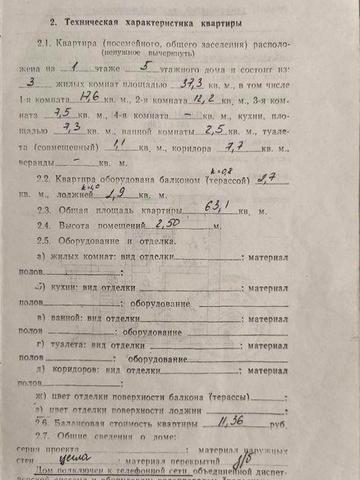 2. Техническая характеристика квартиры
2.1. Квартира (посемейного, общего заселения) располо-
(ненужное вычеркнуть)
жена на 1 этаже 5 этажного дома и состоит из:
3 жилых комнат площадью 37,3 кв. м., в том числе
1-я комната 17,6 кв. м., 2-я комната 12,2 кв. м., 3-я ком-
ната 7,5 кв. м., 4-я комната — кв. м., кухни, пло-
щадью 7,3 кв. м., ванной комнаты 2,5 кв. м., туале-
та (совмещенный) 1,1 кв. м., коридора 7,7 кв. м.,
веранды — кв. м.
2.2. Квартира оборудована балконом (террасой) 2,7
кв. м., лоджией 2,9 кв. м.
2.3. Общая площадь квартиры 63,1 кв. м.
2.4. Высота помещений 2,50 м.
2.5. Оборудование и отделка.
а) жилых комнат: вид отделки ; материал
полов ;
б) кухни: вид отделки ; материал
полов ; оборудование
в) ванной: вид отделки ; материал
полов: оборудование
г) туалета: вид отделки ; материал
полов ; оборудование
д) коридоров: вид отделки ; материал
полов ;
ж) цвет отделки поверхности балкона (террасы) ;
з) цвет отделки поверхности лоджии ;
2.6. Балансовая стоимость квартиры 11,36 руб.
2.7. Общие сведения о доме:
серия проекта ; материал наружных
стен ; материал перекрытий ж/б
Дом подключен к телефонной сети, объединенной диспет-